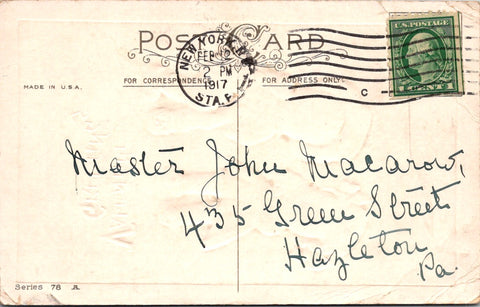 POST CARD
NEW YORK, N.Y.
FEB 12
2 PM
1917
STA. F
C
U.S. POSTAGE
1 CENT 1
FOR CORRESPONDENCE
FOR ADDRESS ONLY
MADE IN U.S.A.
Master John Macarow,
435 Green Street
Hazleton
Pa.
Series 78 A.